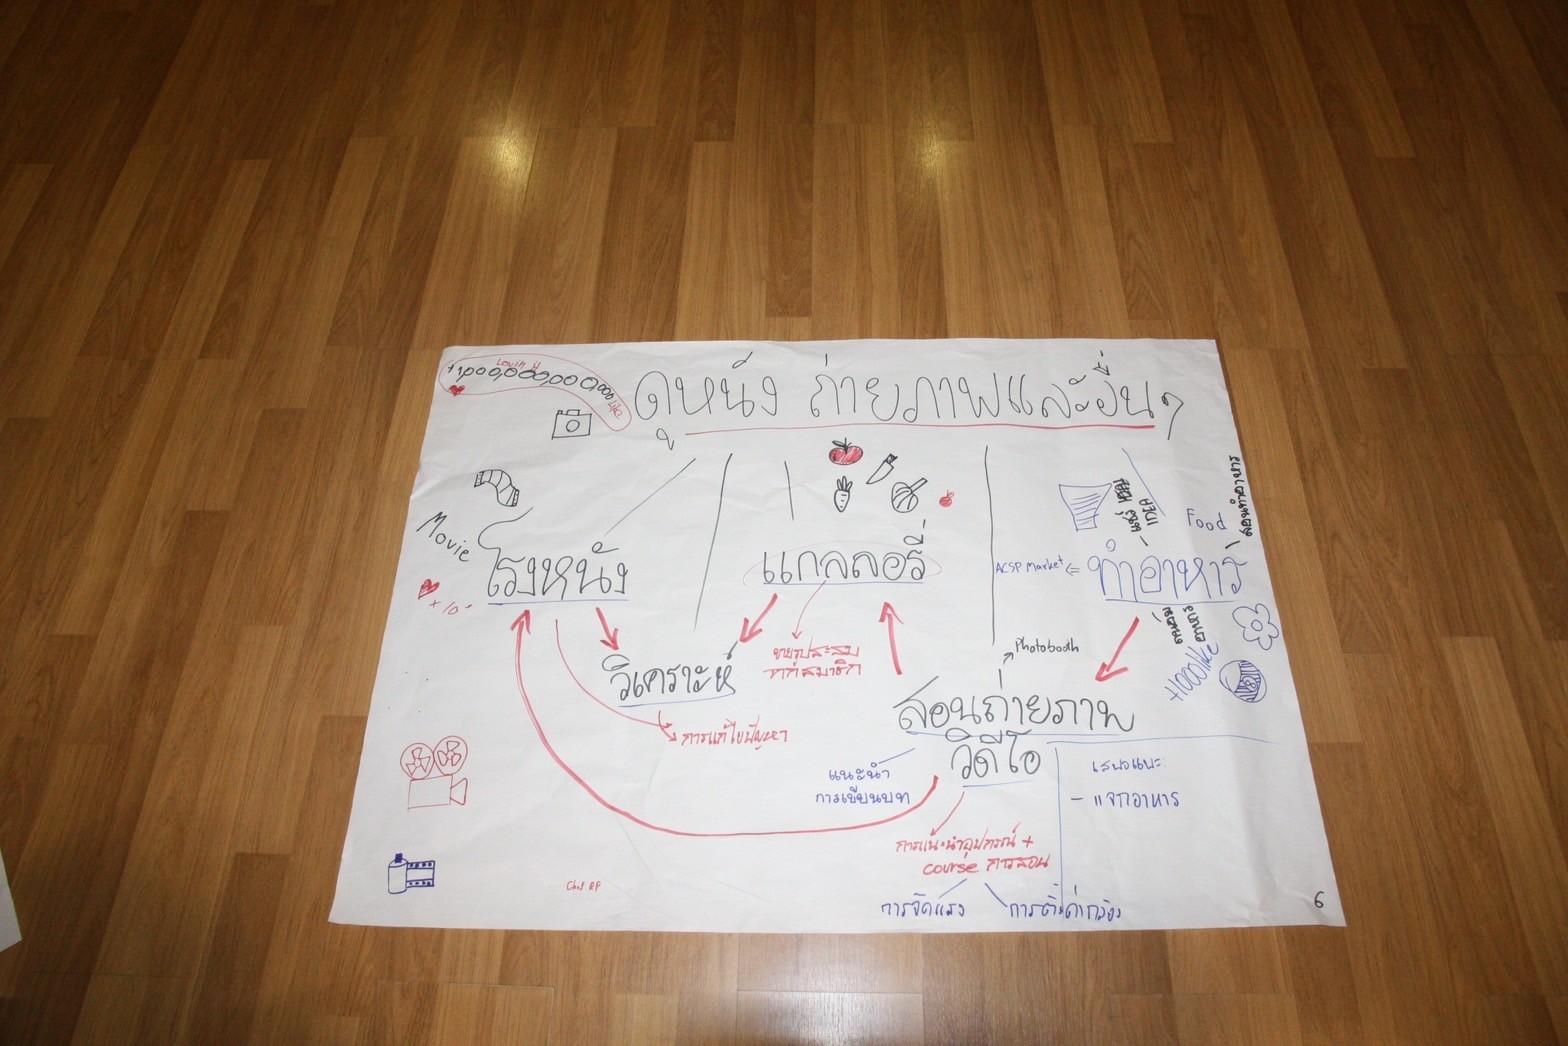 1,000,000,000,000 Like
ดูหนัง ถ่ายภาพและอื่นๆ
Movie
โรงหนัง
แกลลอรี่
Food
สอนทำอาหาร
ACSP Market
ทำอาหาร
+10
วิเคราะห์
ขายรูประสบ
Photobooth
+1000 like
การแก้ไขปัญหา
สอนถ่ายภาพ
วิดีโอ
แนะนำ
การเขียนบท
เสนอแนะ
- แจกอาหาร
การแนะนำอุปกรณ์ +
course การสอน
การจัดแสง
การตั้งค่ากล้อง
6